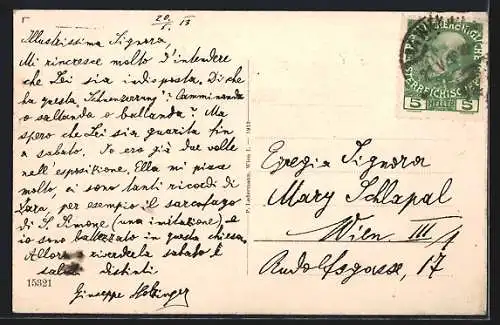 20/5. 13
Illustrissima Signora,
Mi rincresce molto d'intendere
che Lei sia indisposta. Di che
ha questa "Sehnenzerrung"? Camminando
o saltando o ballando? Ma
spero che Lei sia guarita fin
a sabato. Io ero già due volte
nell'esposizione. Ella mi piace
molto, ci sono tanti ricordi di
Zara, per esempio il sarcofago
di S. Simone (una imitazione) e
io sono battezzato in questa chiesa.
Allora a rivederla sabato e
saluti distinti
Giuseppe Holzinger
15321
P. Ledermann, Wien I. — 1912
5 5
Egregia Signora
Mary Schlapal
Wien III/1
Rudolfsgasse, 17